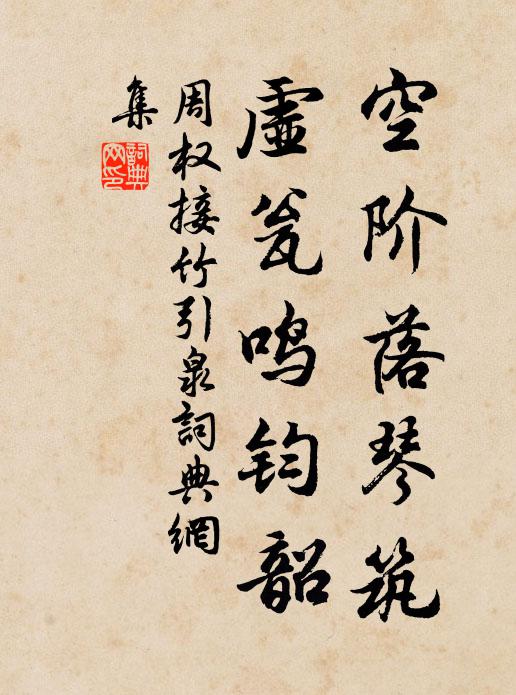 空阶落琴筑
虚瓮鸣钧韶
周权接竹引泉詞典網
集
詞典網印